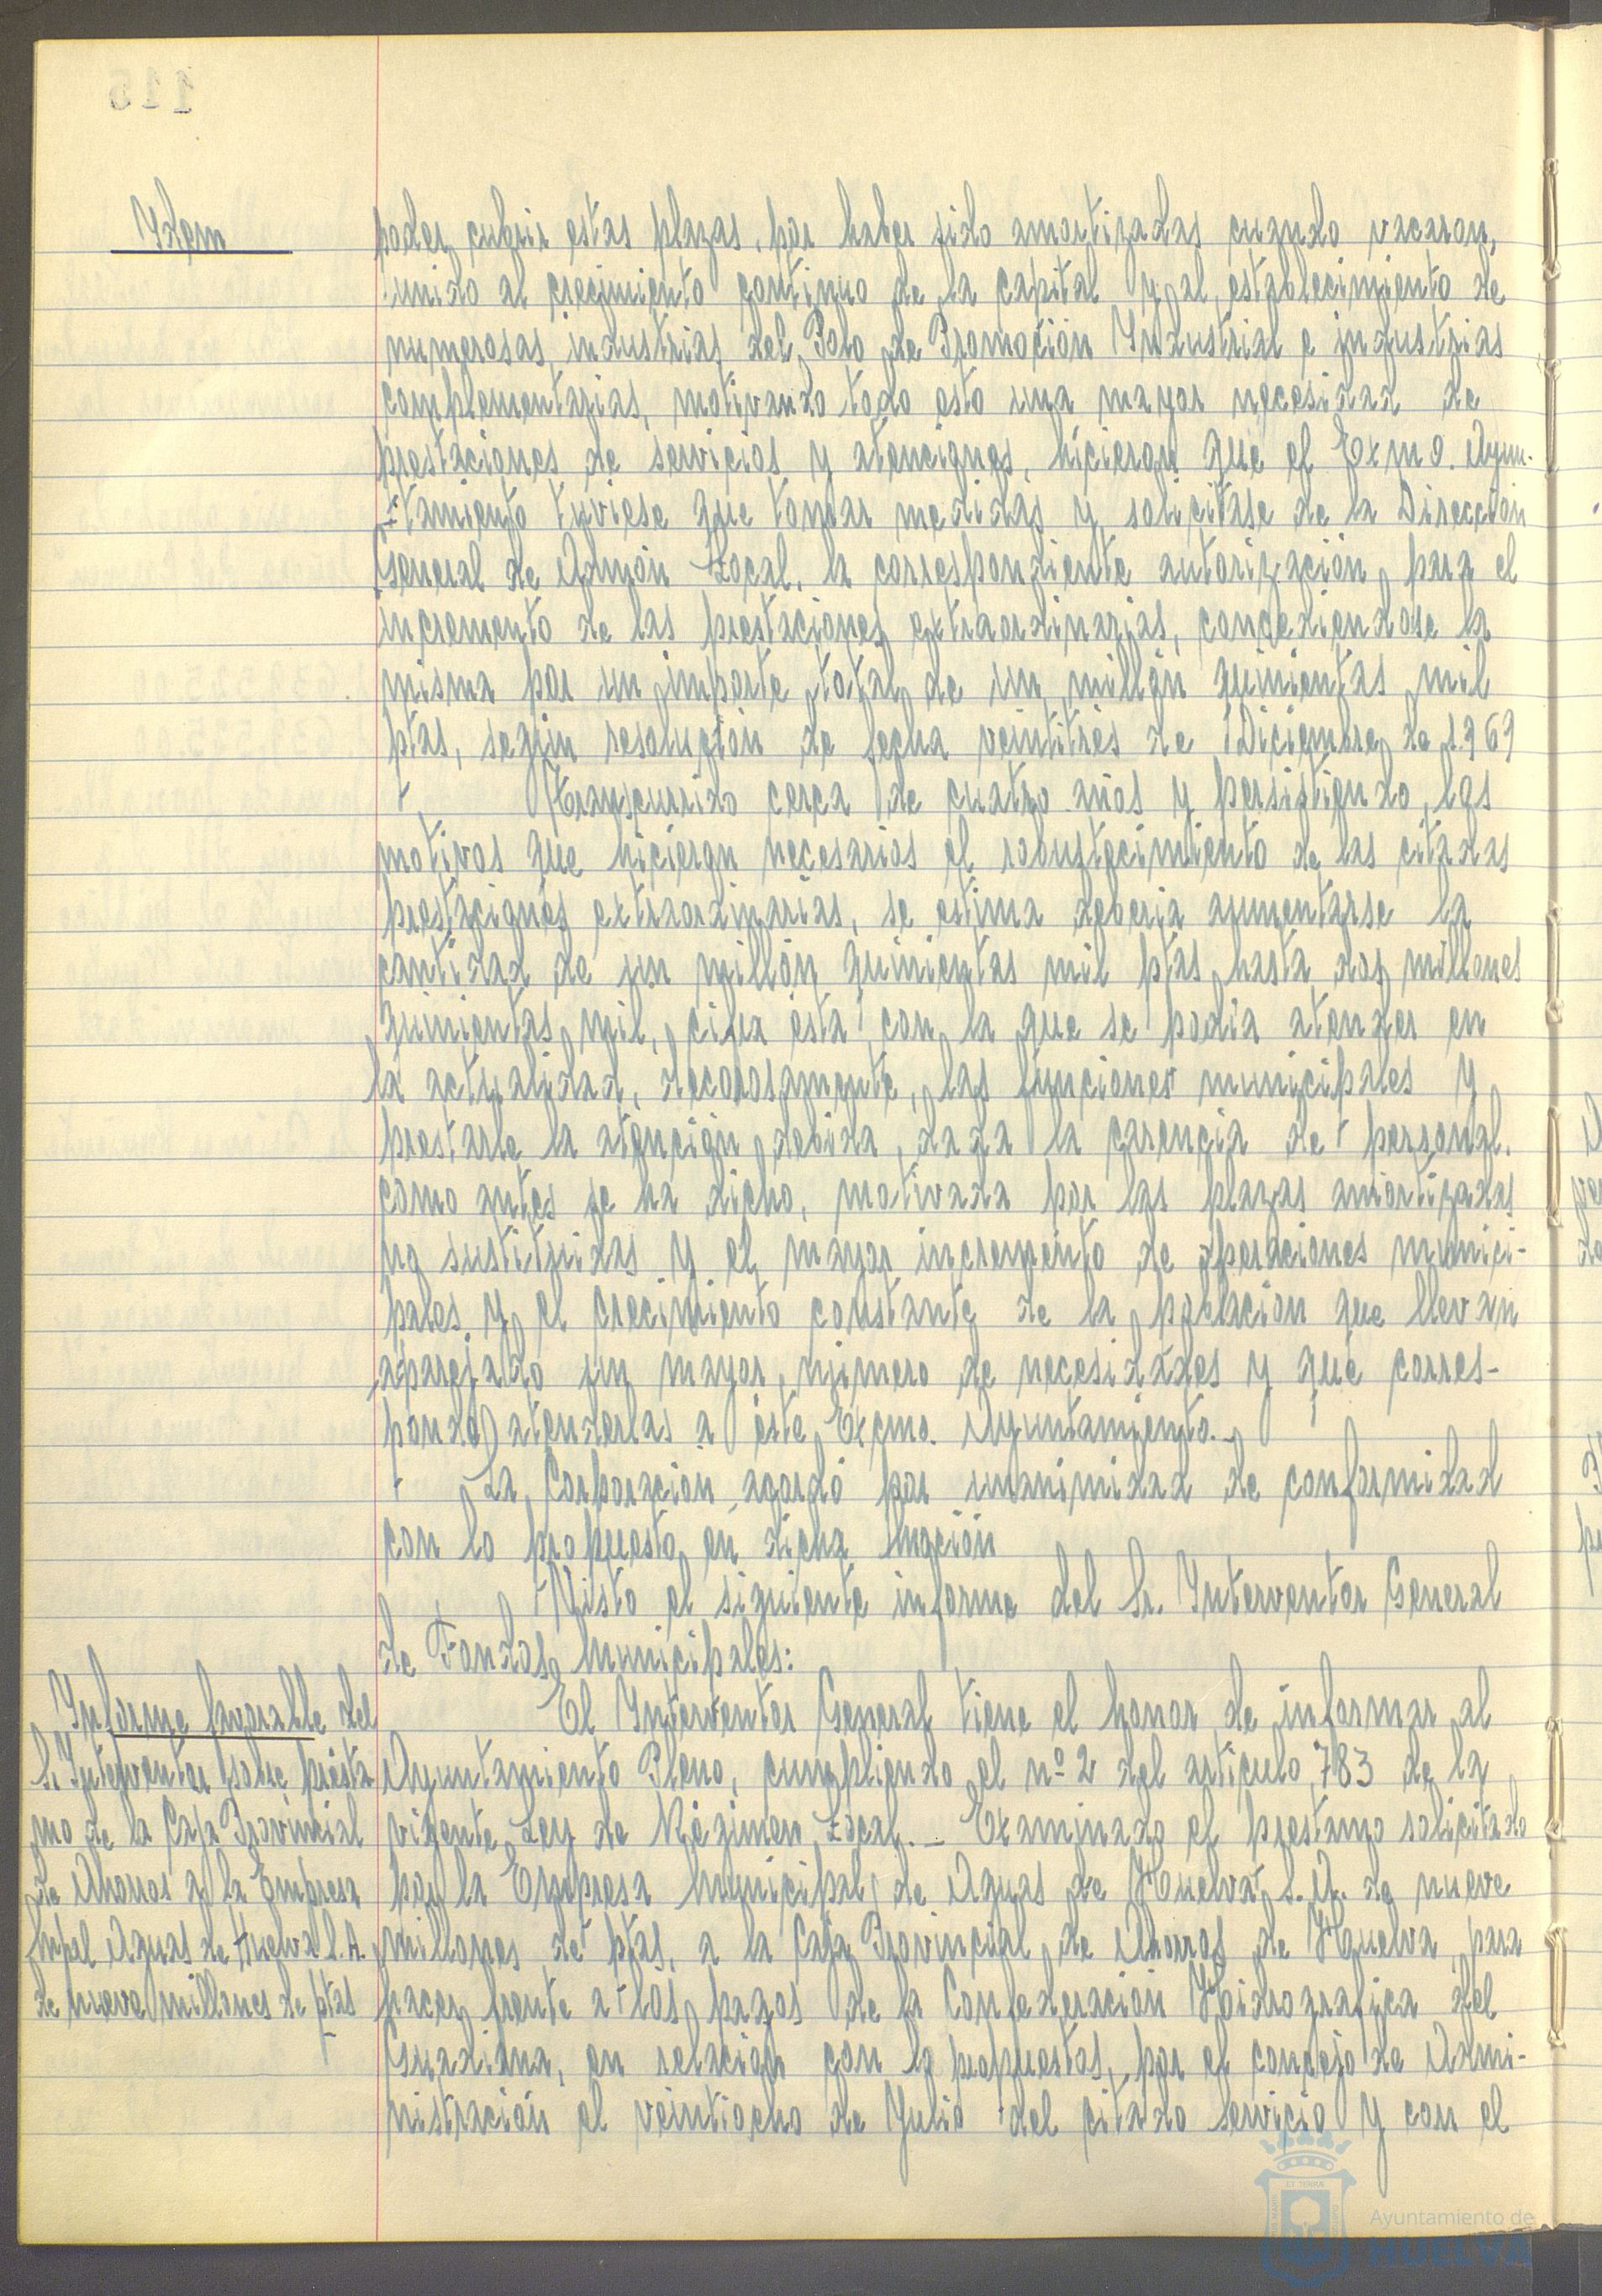 115
Ydem
poder cubrir estas plazas, por haber sido amortizadas cuando vacaron,
unido al crecimiento continuo de la capital y al establecimiento de
numerosas industrias del Polo de Promoción Yndustrial e industrias
complementarias, motivando todo esto una mayor necesidad de
prestaciones de servicios y atenciones, hicieron que el Exmo. Ayun-
tamiento tuviese que tomar medidas y solicitase de la Dirección
General de Admón Local, la correspondiente autorización para el
incremento de las prestaciones extraordinarias, concediendose la
misma por un importe total de un millón quinientas mil
ptas, según resolución de fecha veintitres de Diciembre de 1969
Transcurrido cerca de cuatro años y persistiendo los
motivos que hicieron necesarios el robustecimiento de las citadas
prestaciones extraordinarias, se estima deberia aumentarse la
cantidad de un millón quinientas mil ptas hasta dos millones
quinientas mil, cifra esta con la que se podia atender en
la actualidad, decorosamente, las funciones municipales y
prestarle la atención debida, dada la carencia de personal.
como antes se ha dicho, motivada por las plazas amortizadas
no sustituidas y el mayor incremento de operaciones munici-
pales y el crecimiento constante de la población que llevan
aparejado un mayor número de necesidades y que corres-
ponde atenderlas a este Excmo. Ayuntamiento.-
La Corporación acordó por unanimidad de conformidad
con lo propuesto en dicha Moción
Visto el siguiente informe del Sr. Ynterventor General
de Fondos Municipales:
Ynforme favorable del
S. Ynterventor sobre présta
mo de la Caja Provincial
de Ahorros a la Empresa
Mpal Aguas de Huelva S.A.
de nueve millones de ptas
El Ynterventor General tiene el honor de informar al
Ayuntamiento Pleno, cumpliendo el nº 2 del articulo 783 de la
vigente Ley de Régimen Local.- Examinado el prestamo solicitado
por la Empresa Municipal de Aguas de Huelva S.A. de nueve
millones de ptas, a la Caja Provincial de Ahorros de Huelva, para
hacer frente a los pagos de la Confederación Hidrografica del
Guadiana, en relación con lo propuestos, por el concejo de Admi-
nistración el veintiocho de Julio del citado Servicio y con el
Ayuntamiento de
HUELVA